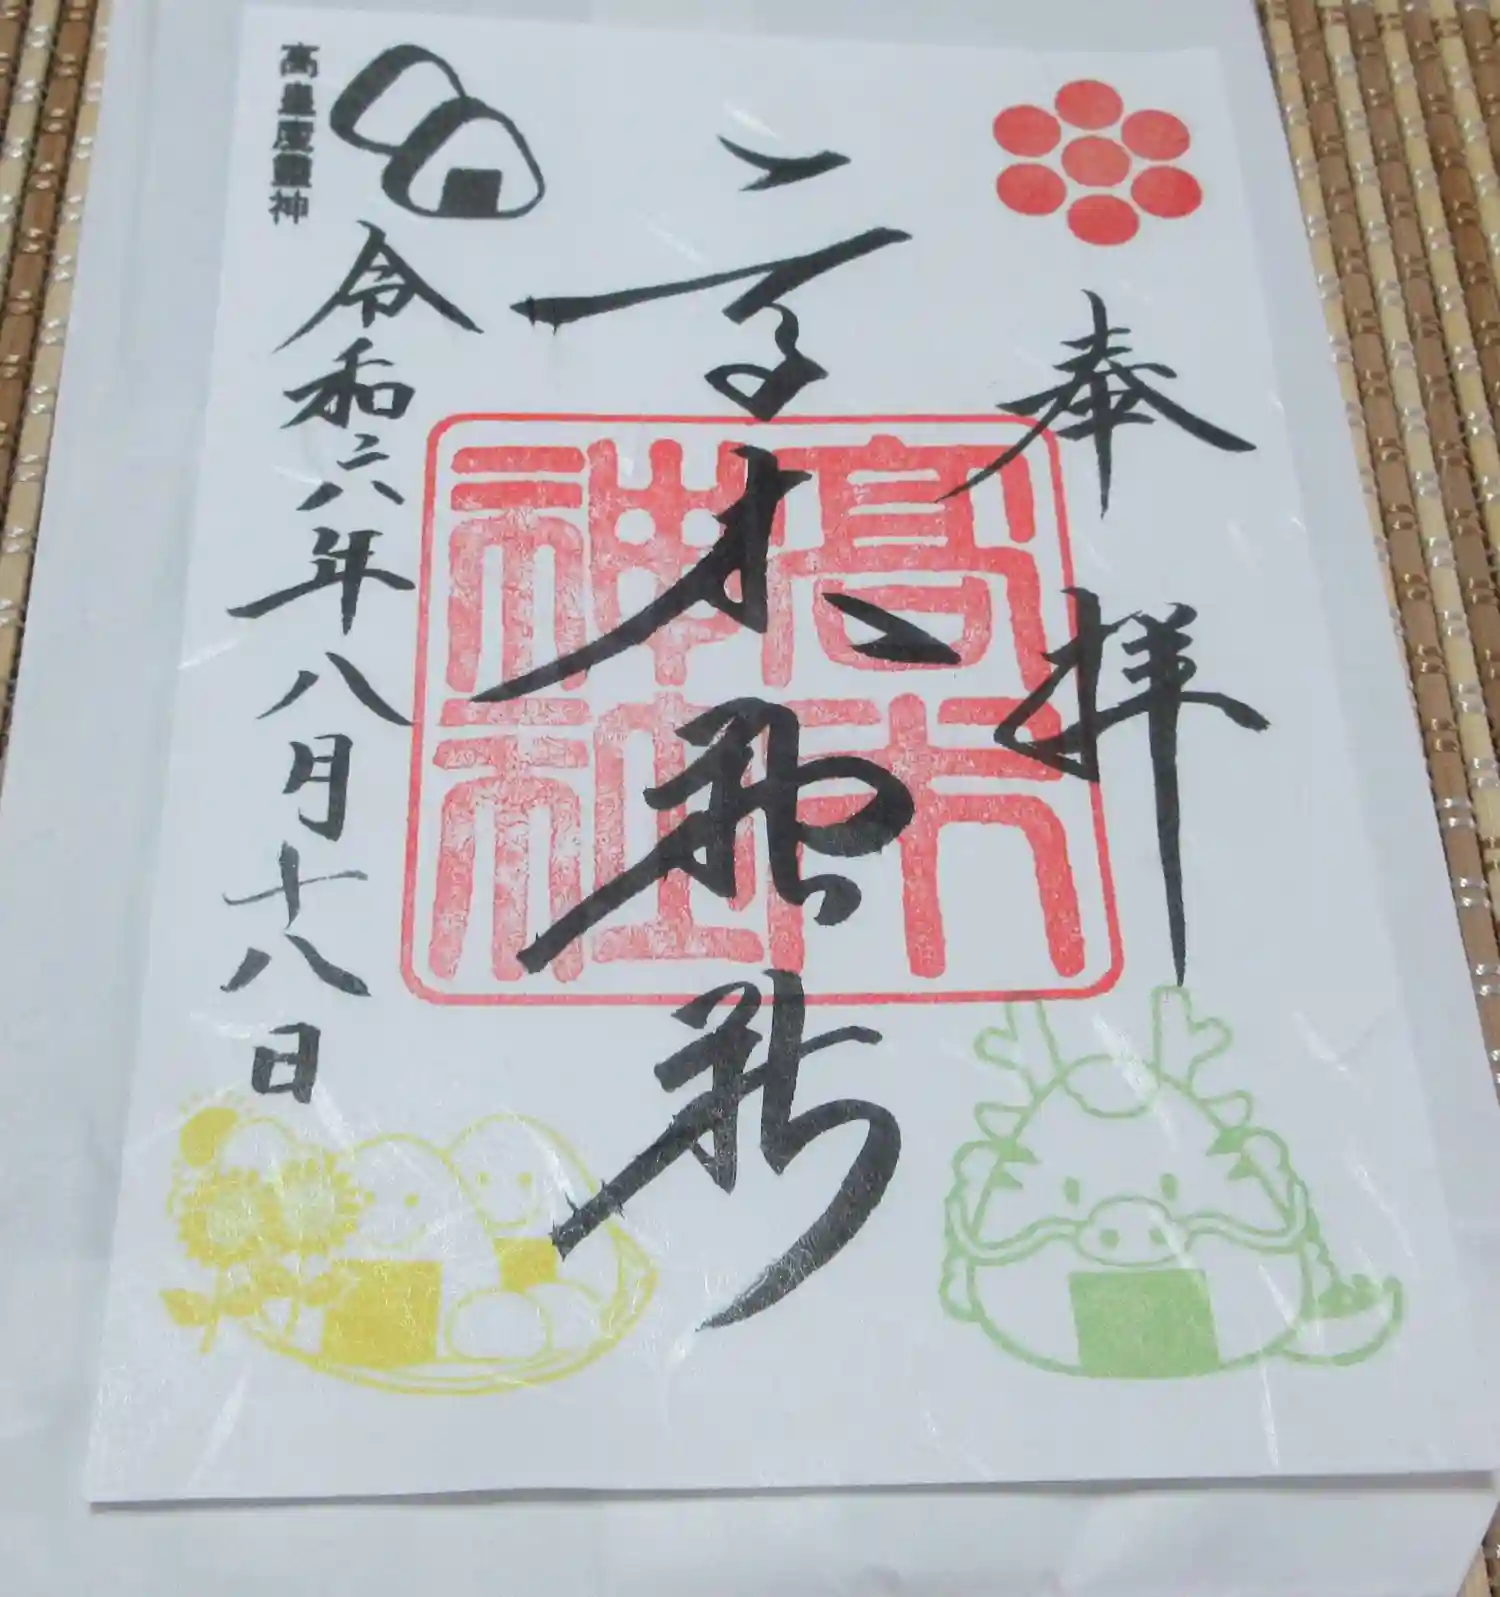 奉拝
高木神社
高木神社
令和六年八月十八日
高皇産靈神